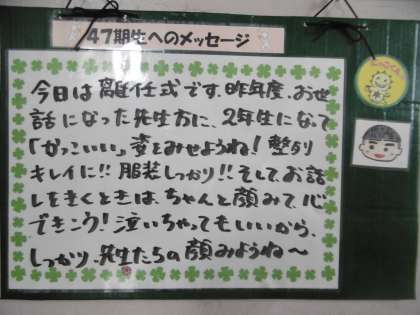 47期生へのメッセージ
今日は離任式です。昨年度、お世
話になった先生方に、2年生になって
「かっこいい」姿をみせようね！整列
キレイに!!服装しっかり!!そしてお話
しをきくときは、ちゃんと顔みて、心
できこう！泣いちゃってもいいから、
しっかり、先生たちの顔みようね〜